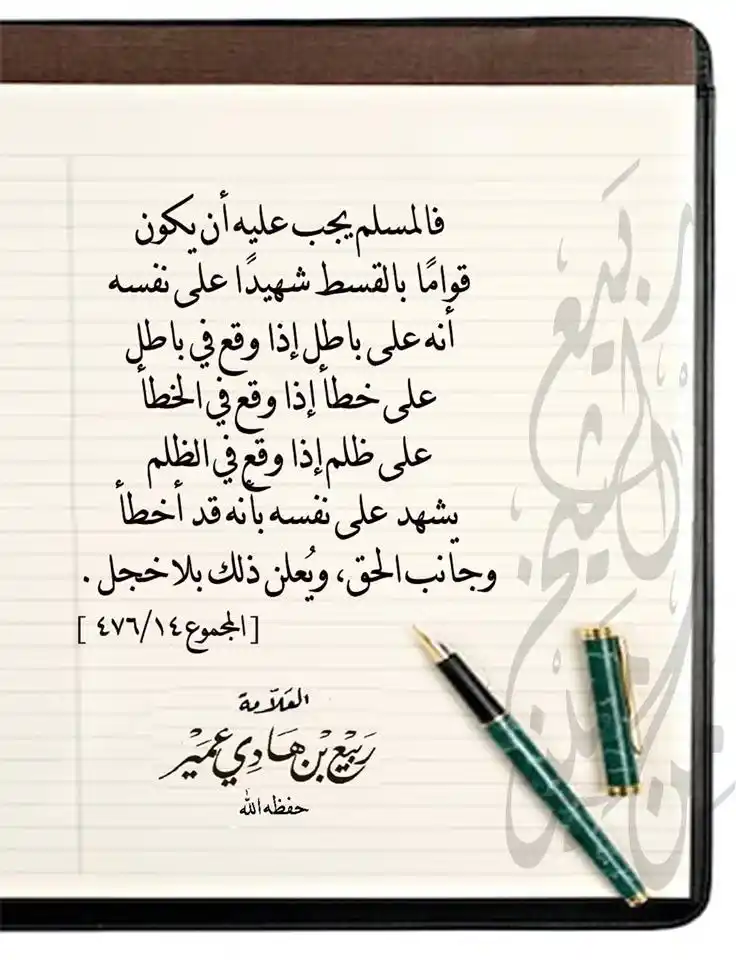 فالمسلم يجب عليه أن يكون
قوامًا بالقسط شهيدًا على نفسه
أنه على باطل إذا وقع في باطل
على خطأ إذا وقع في الخطأ
على ظلم إذا وقع في الظلم
يشهد على نفسه بأنه قد أخطأ
وجانب الحق، ويُعلن ذلك بلا خجل.
[المجموع ١٤/٤٧٦ ]
العَلاّمة
رَبِيْع بْن هَادِي عُمَيْر
حفظه الله
الشيخ
ربيع
بن